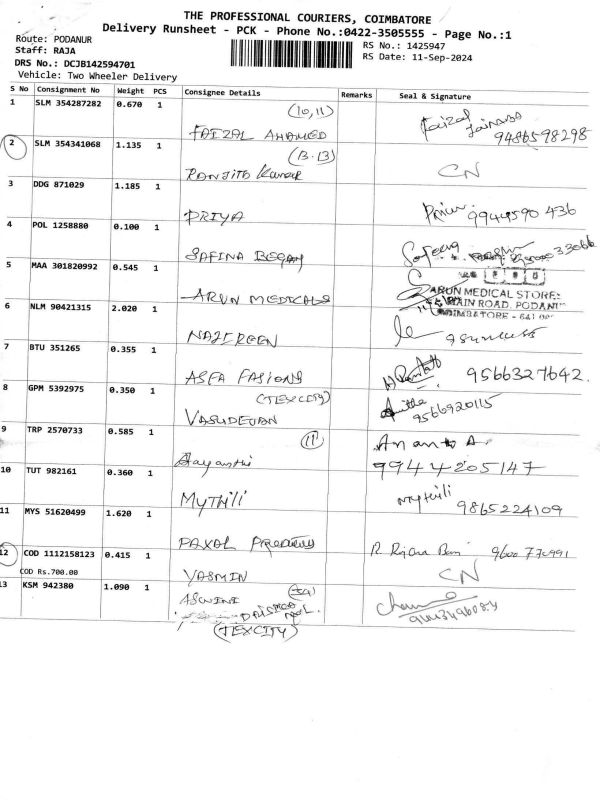 THE PROFESSIONAL COURIERS, COIMBATORE
Delivery Runsheet - PCK - Phone No.:0422-3505555 - Page No.:1
Route: PODANUR
Staff: RAJA
DRS No.: DCJB142594701
Vehicle: Two Wheeler Delivery
RS No.: 1425947
RS Date: 11-Sep-2024
S No Consignment No Weight PCS Consignee Details Remarks Seal & Signature
1 SLM 354287282 0.670 1 (10,11) FAIZAL AHAMED Faizal 9486598298
2 SLM 354341068 1.135 1 (B.B) Ranjith Kumar CN
3 DDG 871029 1.185 1 PRIYA 9944590 436
4 POL 1258880 0.100 1 SAFINA BEGAM
5 MAA 301820992 0.545 1 ARUN MEDICALS
ARUN MEDICAL STORES
MAIN ROAD, PODANUR
COIMBATORE - 641 00
6 NLM 90421315 2.020 1 NAZIREEN
7 BTU 351265 0.355 1 ASFA FASIONS 9566327642.
8 GPM 5392975 0.350 1 (TEXCITY) VASUDEVAN 9566920115
9 TRP 2570733 0.585 1 (11) Jayanthi Anantha.
9944205147
10 TUT 982161 0.360 1 MYTHILI Mythili 9865224109
11 MYS 51620499 1.620 1 PAXAL 9600 770991
12 COD 1112158123 0.415 1 YASMIN CN
COD Rs.700.00
13 KSM 942380 1.090 1 ASWINI
(TEXCITY)